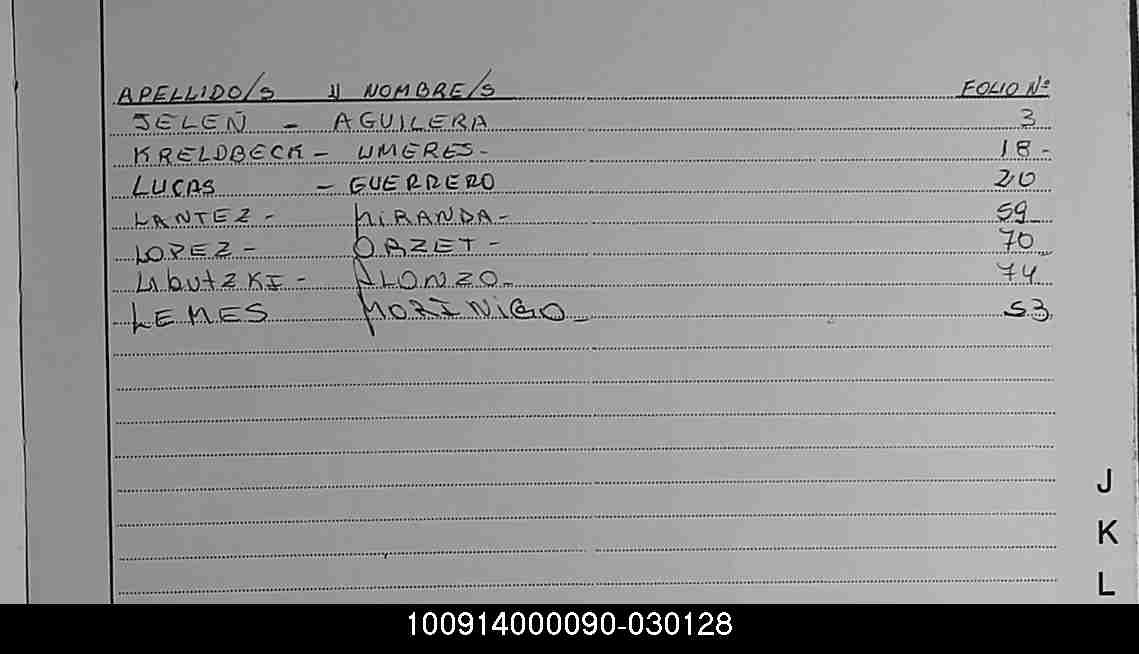 APELLIDO/S Y NOMBRE/S FOLIO Nº
JELEÑ - AGUILERA 3
KRELDBECK - UMERES - 18 -
LUCAS - GUERRERO 20
LANTEZ - MIRANDA - 59
LOPEZ - ORZET - 70
LIbUtZKI - ALONZO - 74
LEMES MORINIGO - 53
J
K
L
100914000090-030128